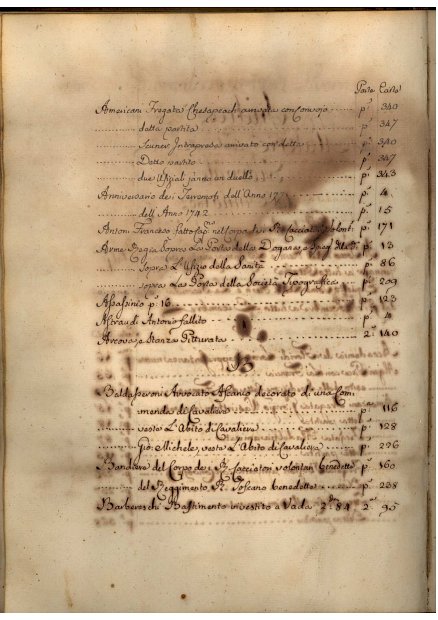 Parte Carte
Americani Fregata Chesapeach arrivata con Convojo p.ª 340
detta partita p.ª 347
Scuner Intrapresa arrivato con detta p.ª 340
Detto partito p.ª 347
due Ufizial fanno un duello p.ª 343
Anniversario dei Terremoti dell'Anno p.ª 4
dell'Anno 1742 p.ª 15
Antoni Francesco fatto nel Corpo dei Cacciat. Volont. p.ª 171
Arme Regia Sopra La Porta della Dogana p.ª 13
sopra L'Ufizio della Sanità p.ª 86
sopra La Porta della Società Tipografica p.ª 209
Assassinio p. 16 p.ª 123
Astraudi Antonio fallito p.ª 4
Arcova, e Stanza Pitturata 2.ª 140
B
Baldasseroni Avvocato Ascanio decorato di una Com:
menda di Cavaliere p.ª 116
veste L'Abito di Cavaliere p.ª 128
Gio: Michele, veste L'Abito di Cavaliere p.ª 226
Bandiere del Corpo dei R. Cacciatori volontari benedette p.ª 160
del Reggimento R. Toscano benedette p.ª 238
Barbereschi Bastimento investito a Vada 2.ª 84 2.ª 95